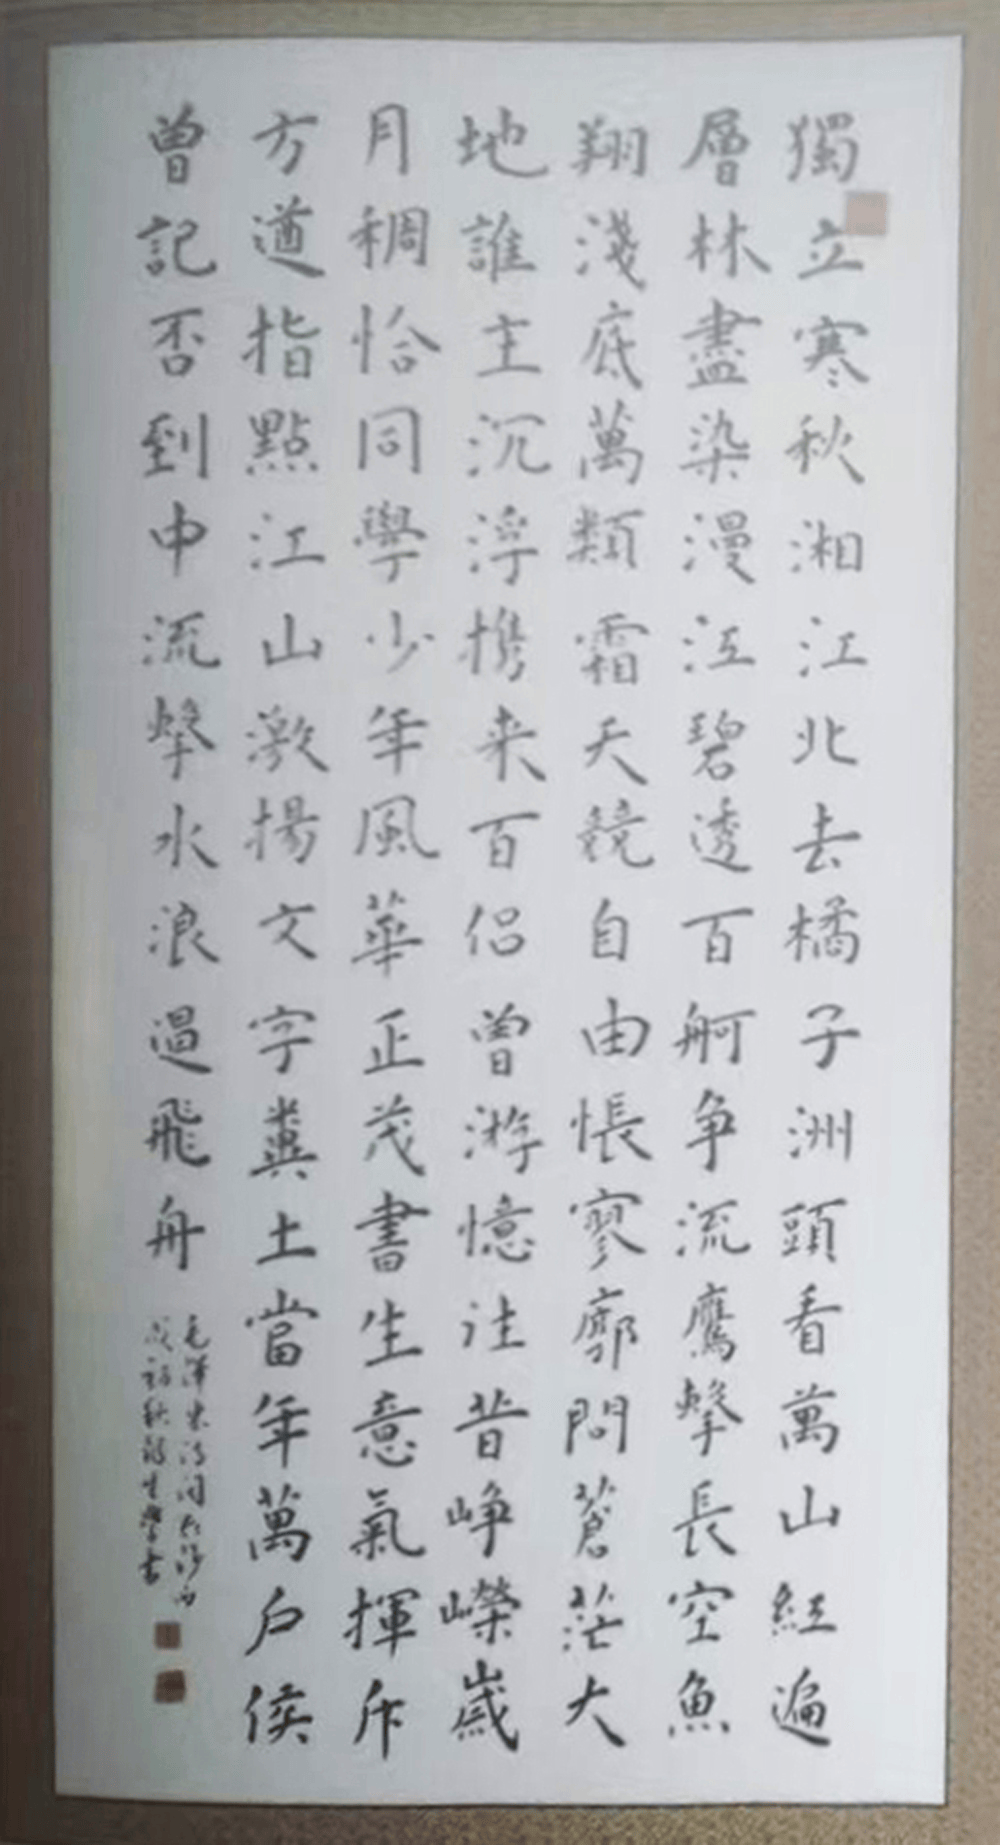 獨立寒秋湘江北去橘子洲頭看萬山紅遍
層林盡染漫江碧透百舸争流鷹擊長空魚
翔淺底萬類霜天競自由悵寥廓問蒼茫大
地誰主沉浮携来百侣曾游憶往昔峥嶸歲
月稠恰同學少年風華正茂書生意氣揮斥
方遒指點江山激揚文字糞土當年萬户侯
曾記否到中流擊水浪遏飛舟
毛澤東
秋生學書